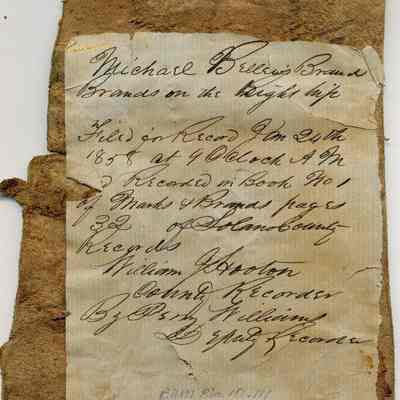 Michael Bellew's Brand
Brands on the Right hip
Filed for Record Jan 24th
1858 at 9 O Clock A M
& Recorded in Book No 1
of Marks & Brands pages
32 of Solano County
Records
William J Hooton
County Recorder
By Perry Williams
Deputy Recorder